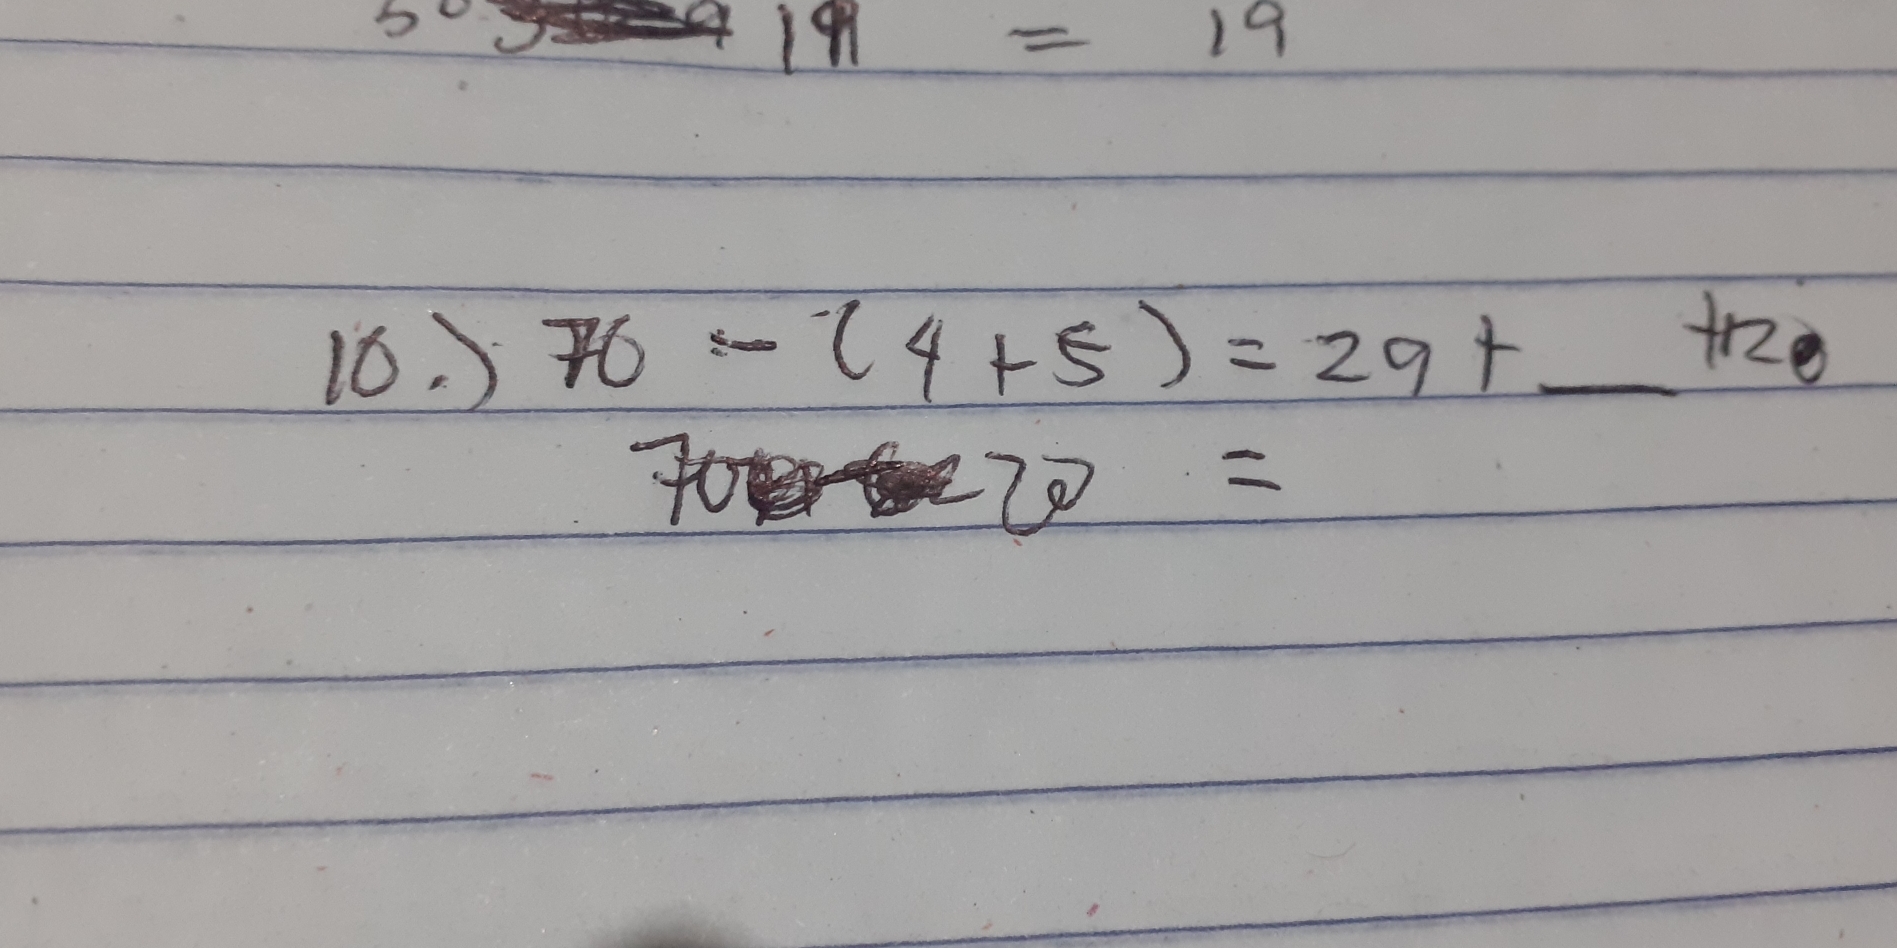 50 19 = 19
10.) 70 - (4+5) = 29 + __ +12
70 20 =